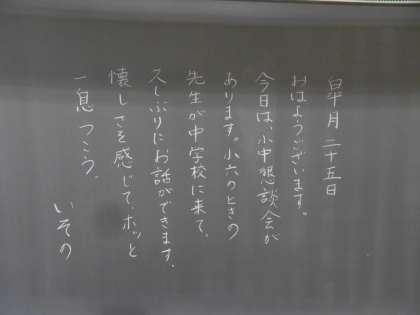 皐月二十五日
おはようございます。
今日は、小中懇談会が
あります。小六のときの
先生が中学校に来て、
久しぶりにお話ができます。
懐しさを感じて、ホッと
一息つこう。
いその